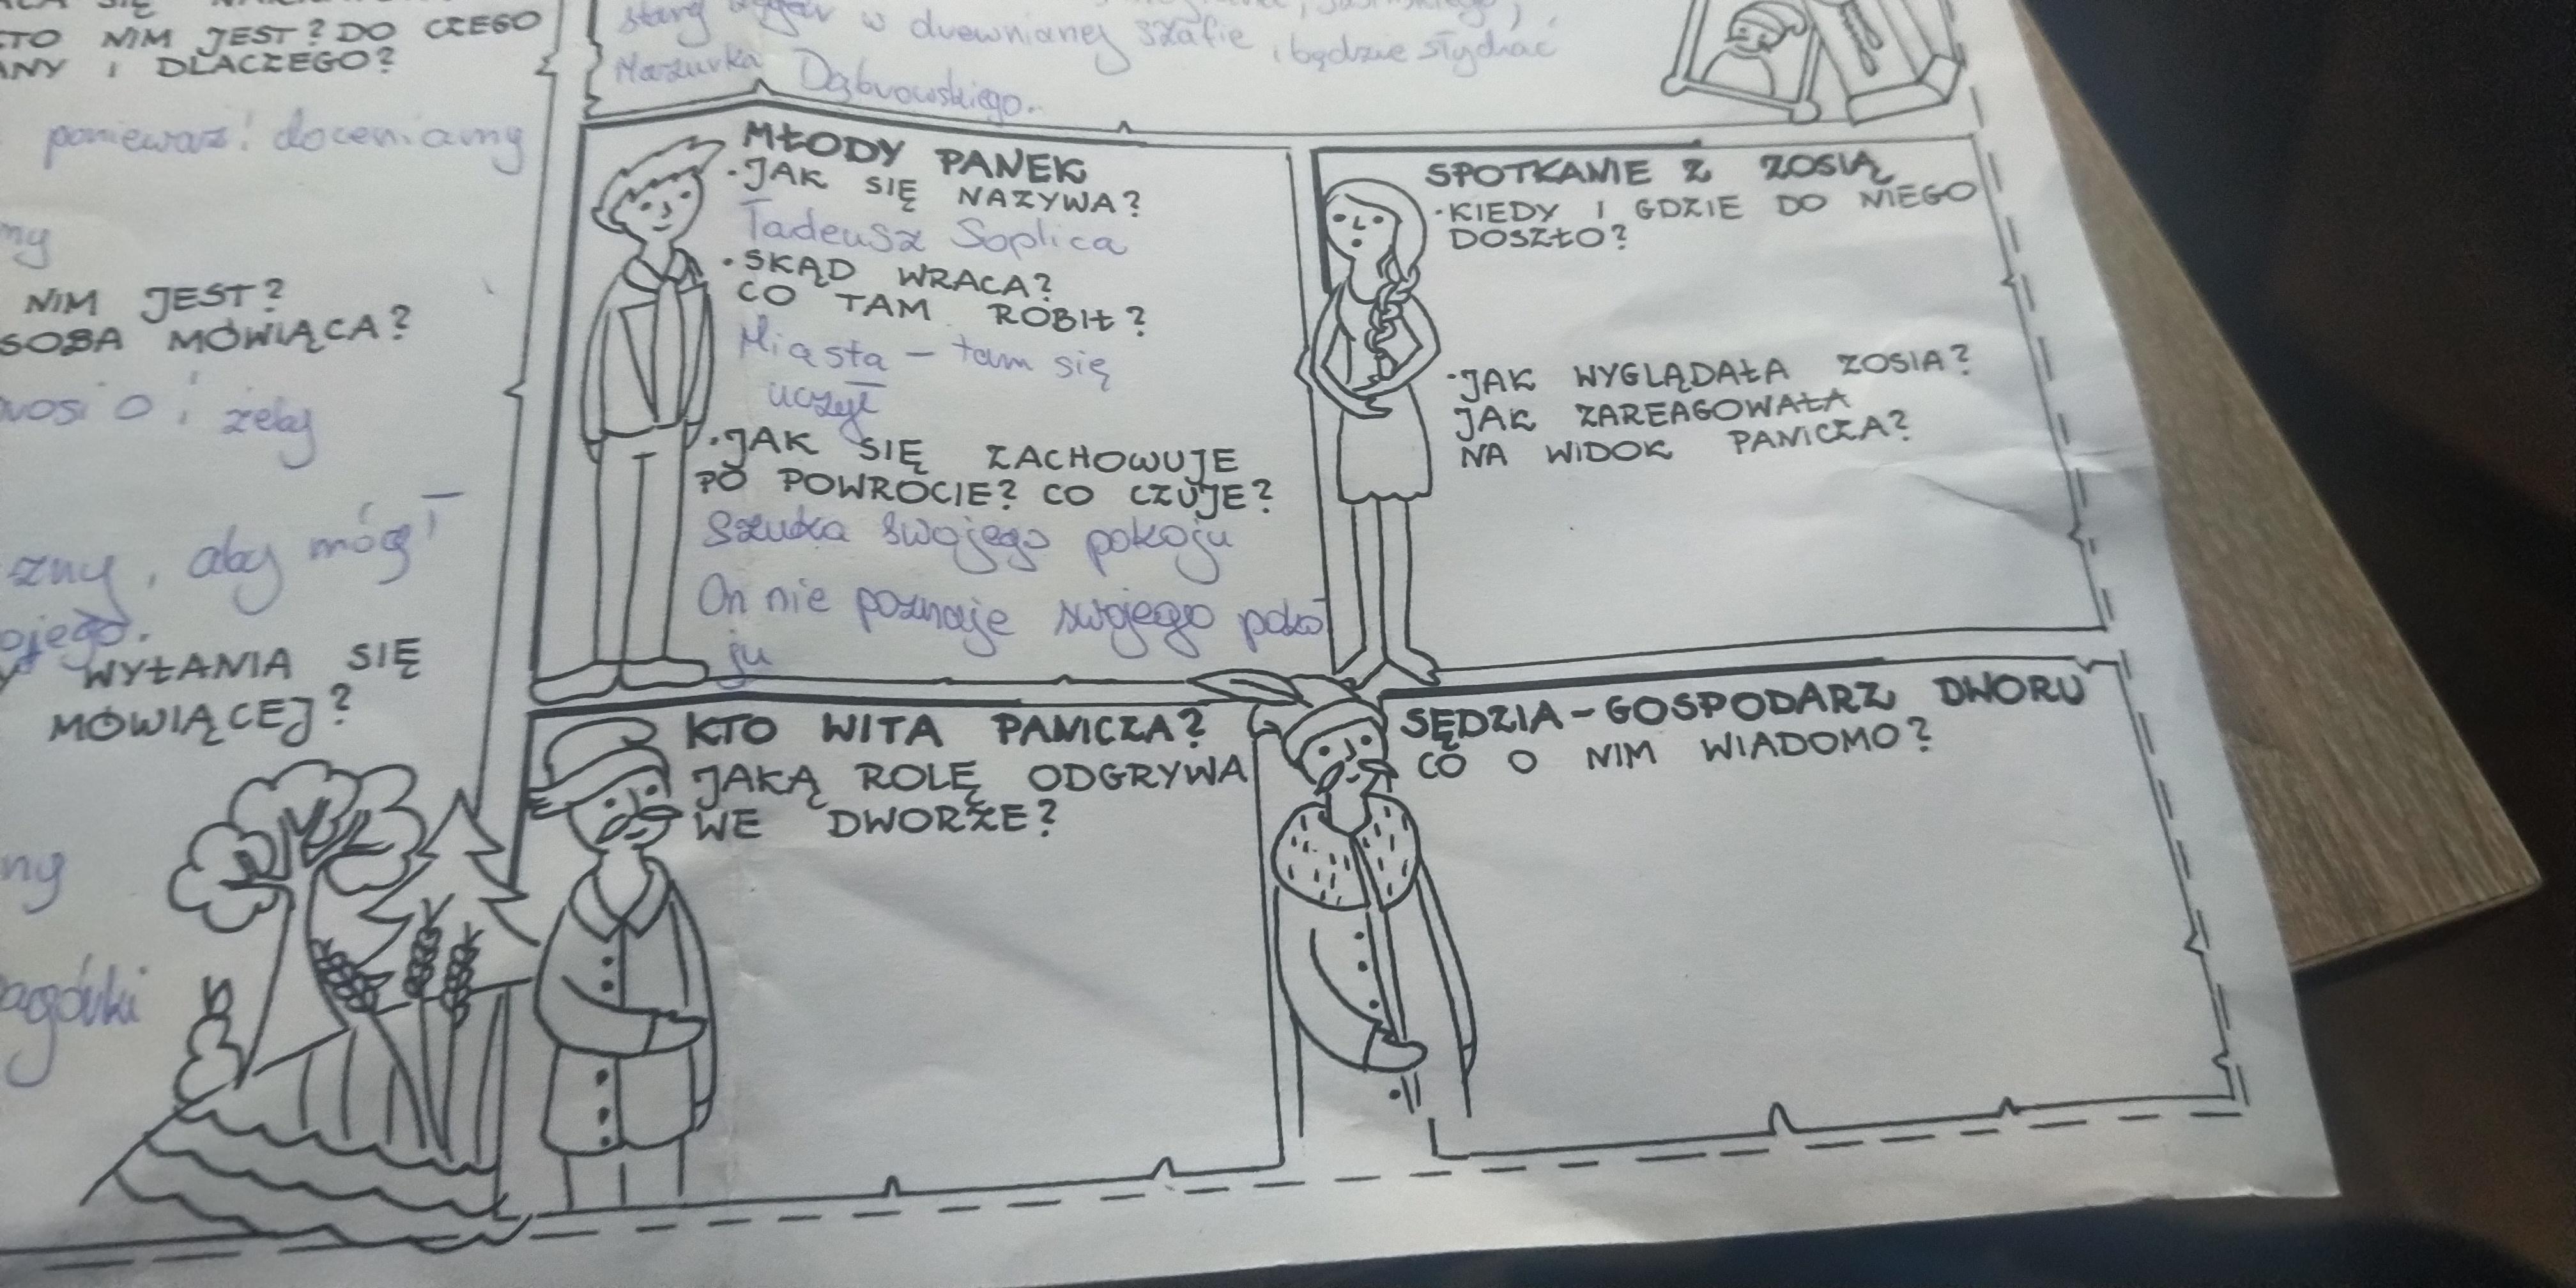 KTO NIM JEST? DO CZEGO
I DLACZEGO?
ponieważ doceniamy
NIM JEST?
MÓWIĄCA?
i żeby
aby mógł
WYŁANIA SIĘ
MÓWIĄCEJ?
stary zegar w drewnianej szafie i będzie słychać
Mazurka Dąbrowskiego.
MŁODY PANEK
·JAK SIĘ NAZYWA?
Tadeusz Soplica
·SKĄD WRACA?
CO TAM ROBIŁ?
Miasta – tam się
uczył
·JAK SIĘ ZACHOWUJE
PO POWROCIE? CO CZUJE?
Szuka swojego pokoju
On nie poznaje swojego poko
ju
SPOTKANIE Z ZOSIĄ
·KIEDY I GDZIE DO NIEGO
DOSZŁO?
·JAK WYGLĄDAŁA ZOSIA?
JAK ZAREAGOWAŁA
NA WIDOK PANICZA?
KTO WITA PANICZA?
JAKĄ ROLĘ ODGRYWA
WE DWORZE?
SĘDZIA – GOSPODARZ DWORU
CO O NIM WIADOMO?